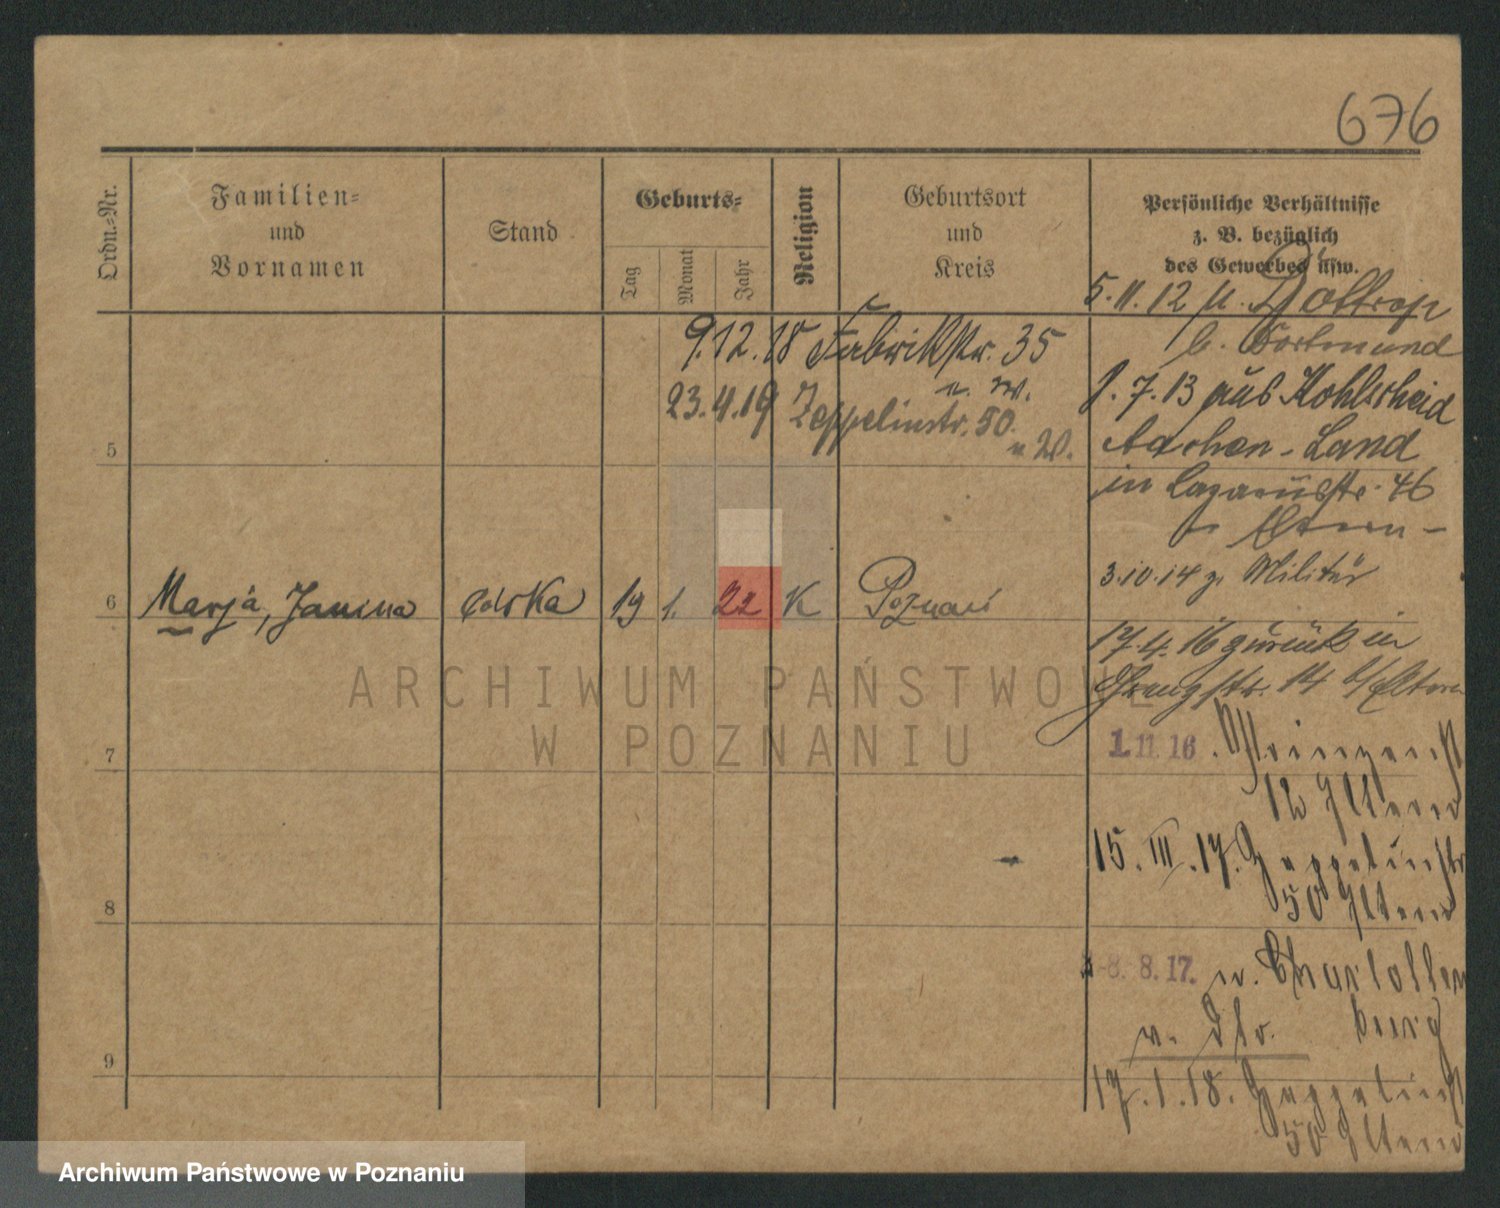 676
Ordn.-Nr.
Familien-
und
Vornamen
Stand
Geburts-
Tag
Monat
Jahr
Religion
Geburtsort
und
Kreis
Persönliche Verhältnisse
z. B. bezüglich
des Gewerbes usw.
5.11.12 n. Bottrop
b. Dortmund
1.7.13 aus Kohlscheid
Aachen-Land
in Lazarusstr. 46
Eltern -
3.10.14 z. Militär
17.4.16 zurück in
14 b/Eltern
1.11.16.
12 Eltern
15.III.17. Zeppelinstr
50 Eltern
8. 8. 17. n. Charlotten
burg
17.1.18. Zeppelinst
50 Eltern
9.12.18 Fabrikstr. 35
n. W.
23.4.19 Zeppelinstr. 50.
n W.
5
6 Marja, Janina córka 19 1. 22 K Poznań
7
8
9
ARCHIWUM PAŃSTWOWE
W POZNANIU
Archiwum Państwowe w Poznaniu